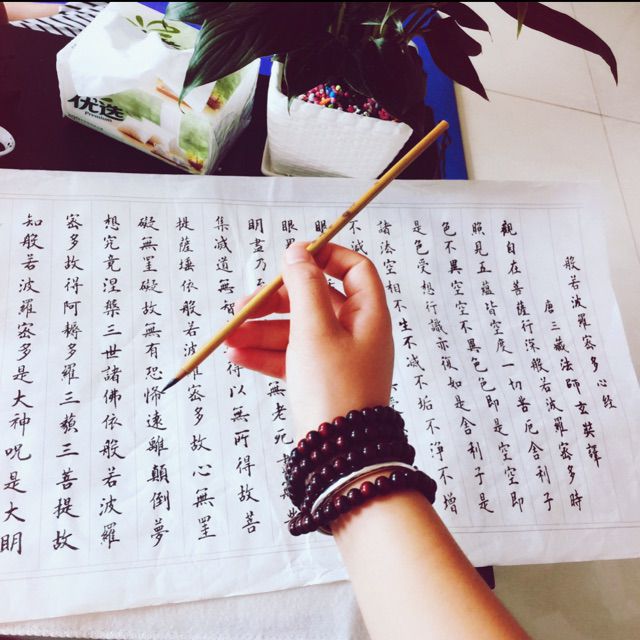 优选
Premium
般若波羅蜜多心經
唐三藏法師玄奘譯
觀自在菩薩行深般若波羅蜜多時
照見五蘊皆空度一切苦厄舍利子
色不異空空不異色色即是空空即
是色受想行識亦復如是舍利子是
諸法空相不生不滅不垢不淨不增
眼
眼
明盡乃至 無老死
集滅道無智 得以無所得故菩
提薩埵依般若波羅蜜多故心無罣
礙無罣礙故無有恐怖遠離顛倒夢
想究竟涅槃三世諸佛依般若波羅
蜜多故得阿耨多羅三藐三菩提故
知般若波羅蜜多是大神呪是大明